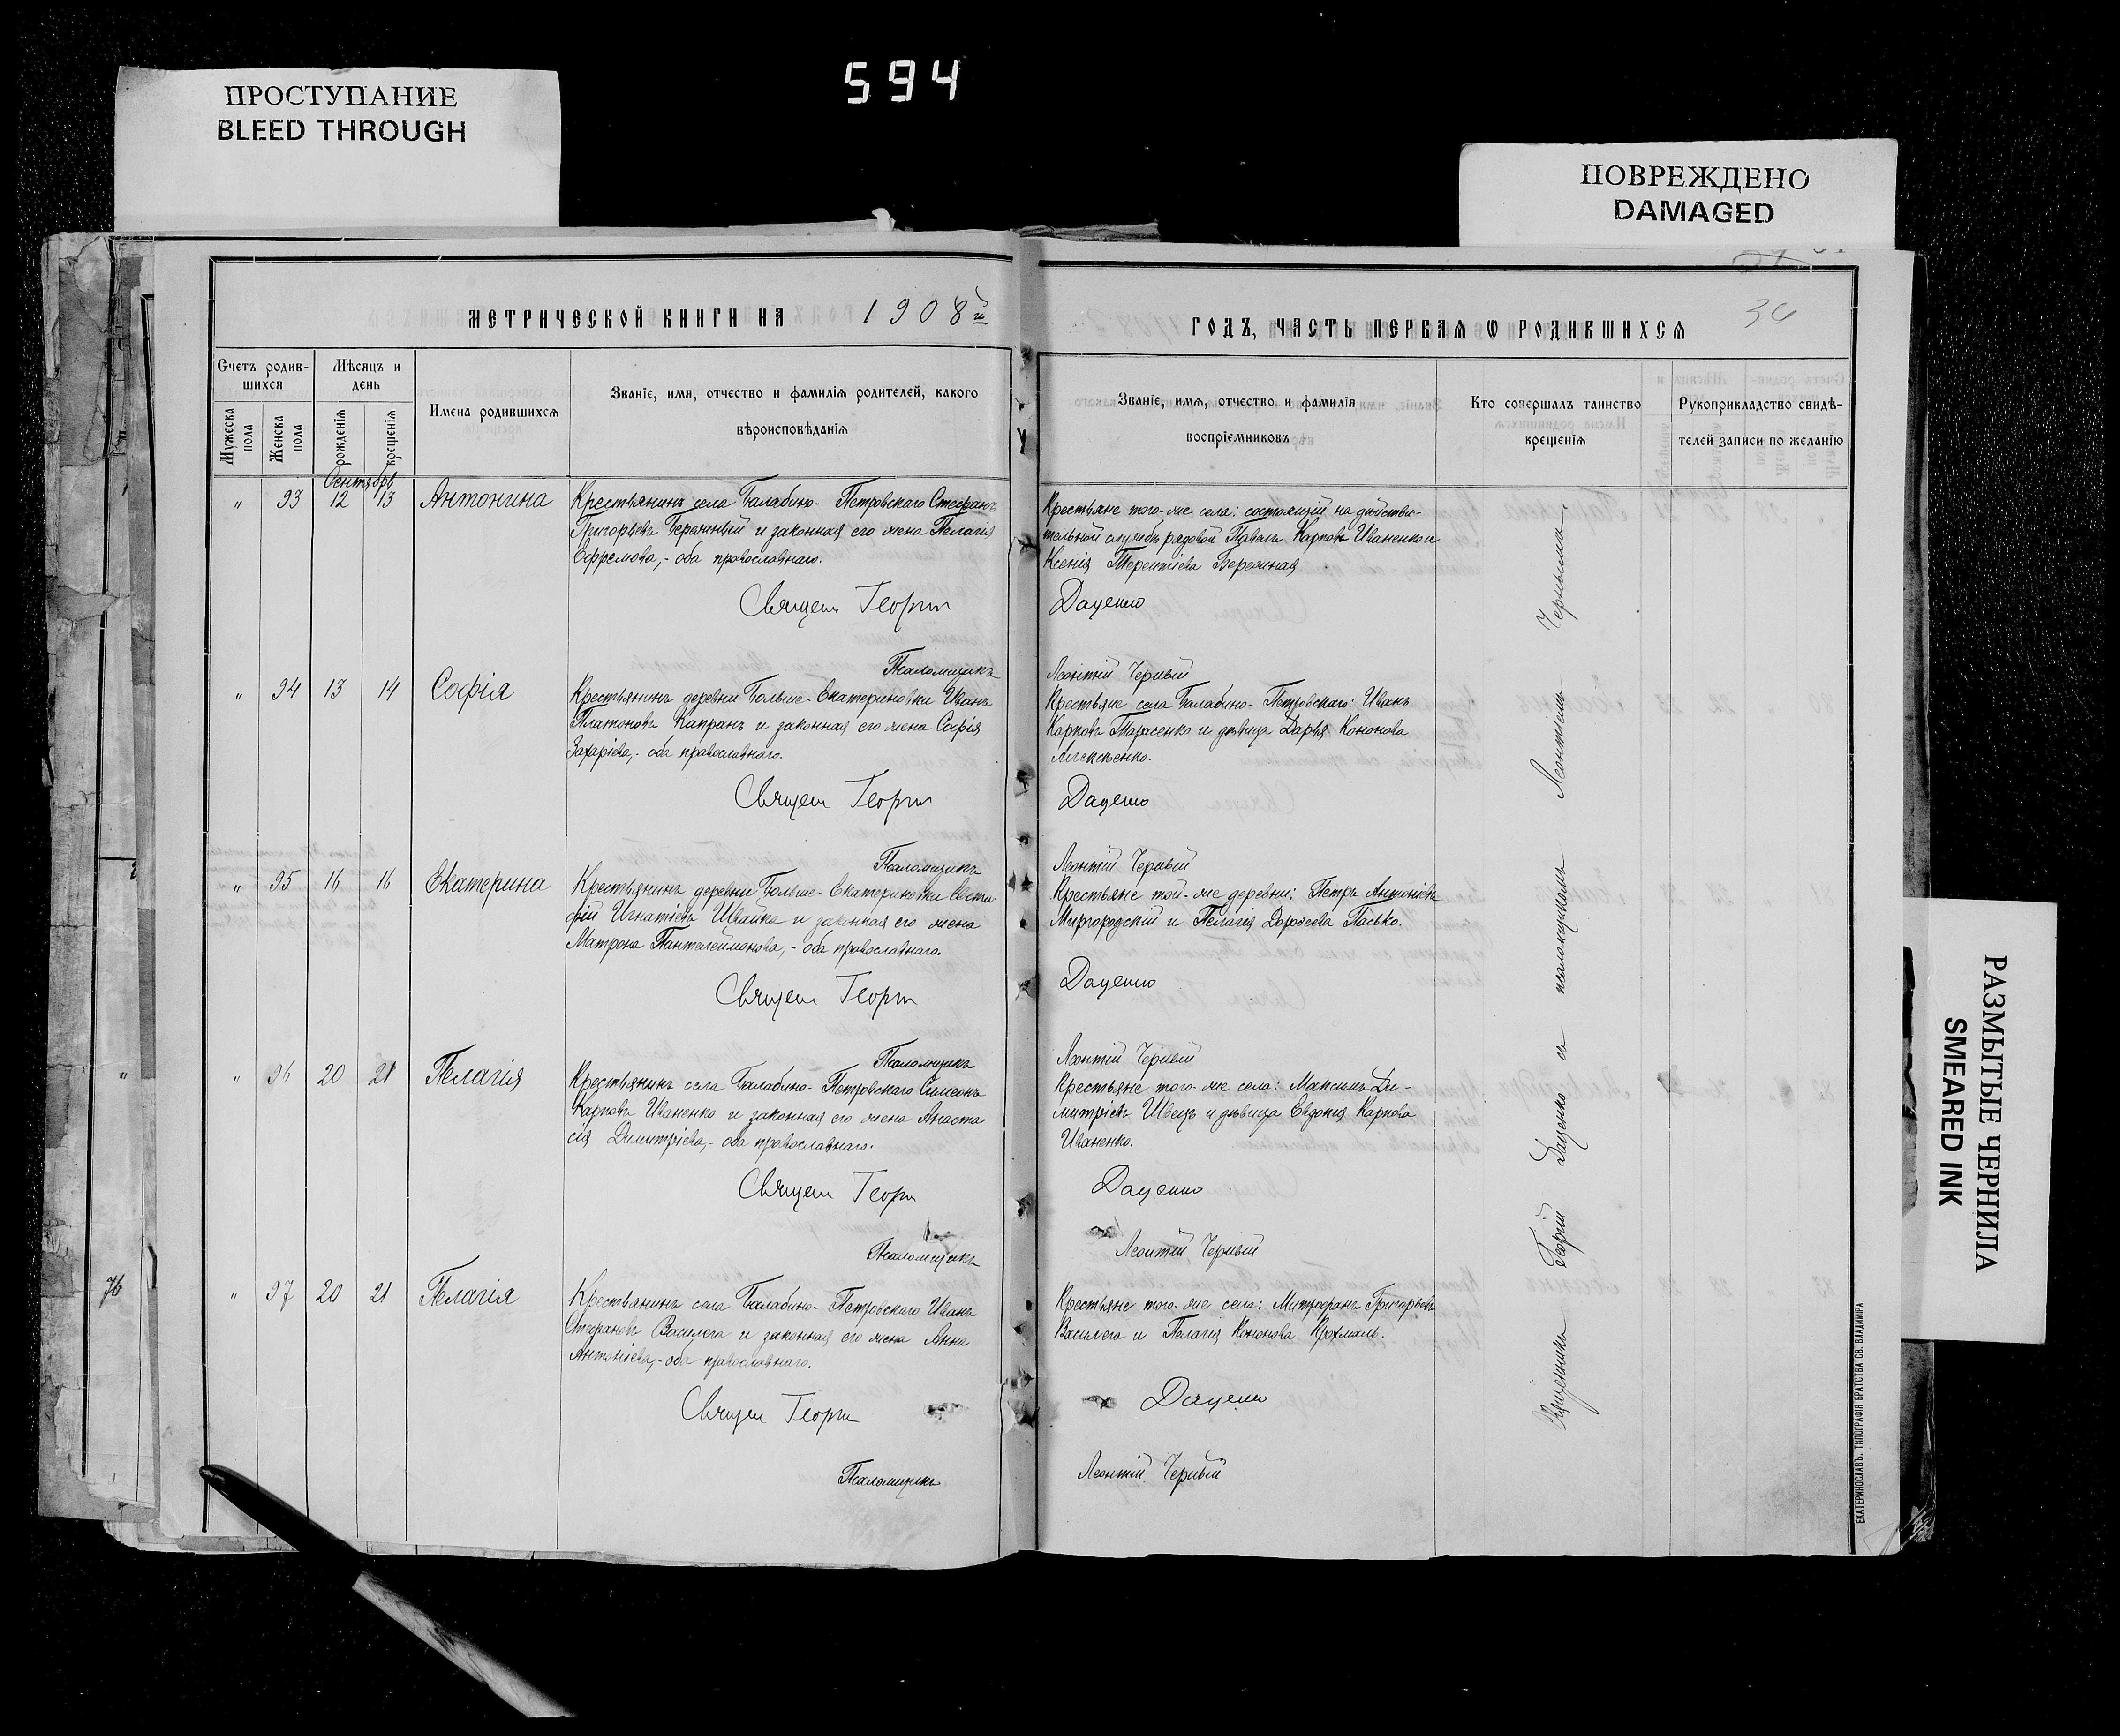 594
ПРОСТУПАНИЕ
BLEED THROUGH
ПОВРЕЖДЕНО
DAMAGED
РАЗМЫТЫЕ ЧЕРНИЛА
SMEARED INK
МЕТРИЧЕСКОЙ КНИГИ НА 1908й
ГОДЪ, ЧАСТЬ ПЕРВАЯ Ѡ РОДИВШИХСЯ
34
Счетъ родив-
шихся
Мужеска пола
Женска пола
Мѣсяцъ и
день
рожденія
крещенія
Имена родившихся
Званіе, имя, отчество и фамилія родителей, какого
вѣроисповѣданія
Званіе, имя, отчество и фамилія
воспріемниковъ
Кто совершалъ таинство
крещенія
Рукоприкладство свидѣ-
телей записи по желанію
Сентябрь
" 93 12 13 Антонина
Крестьянинъ села Балабино-Петровскаго Стефанъ
Григорьевъ Бережный и законная его жена Пелагія
Ефремова,- оба православнаго.
Крестьяне того-же села: состоящій на дѣйстви-
тельной службѣ рядовой Павелъ Карповъ Иваненко и
Ксенія Терентіева Бережная
Священ Георги Даценко
Псаломщикъ Леонтій Черный
" 94 13 14 Софія
Крестьянинъ деревни Больше-Екатериновки Иванъ
Платоновъ Капранъ и законная его жена Софія
Захаріева,- оба православнаго.
Крестьяне села Балабино-Петровскаго: Иванъ
Карповъ Тарасенко и дѣвица Дарья Кононова
Священ Георги Даценко
Псаломщикъ Леонтій Черный
" 95 16 16 Екатерина
Крестьянинъ деревни Больше-Екатериновки Евста-
фій Игнатіевъ Швайка и законная его жена
Матрона Пантелеймонова,- оба православнаго.
Крестьяне той-же деревни: Петръ Антоніевъ
Миргородскій и Пелагія Дороѳеева Пасько.
Священ Георги Даценко
Псаломщикъ Леонтій Черный
" 96 20 21 Пелагія
Крестьянинъ села Балабино-Петровскаго Симеонъ
Карповъ Иваненко и законная его жена Анаста-
сія Димитріева,- оба православнаго.
Крестьяне того-же села: Максимъ Ди-
митріевъ Швецъ и дѣвица Евдокія Карпова
Иваненко.
Священ Георги Даценко
Псаломщикъ Леонтій Черный
76
" 97 20 21 Пелагія
Крестьянинъ села Балабино-Петровскаго Иванъ
Стефановъ Василега и законная его жена Анна
Антоніева,- оба православнаго.
Крестьяне того-же села: Митрофанъ Григорьевъ
Василега и Пелагія Кононова Крохмаль.
Священ Георги Даценко
Псаломщикъ Леонтій Черный
Священникъ Георгій Даценко съ псаломщикомъ Леонтіемъ Чернымъ.
ЕКАТЕРИНОСЛАВЪ. ТИПОГРАФІЯ БРАТСТВА СВ. ВЛАДИМІРА